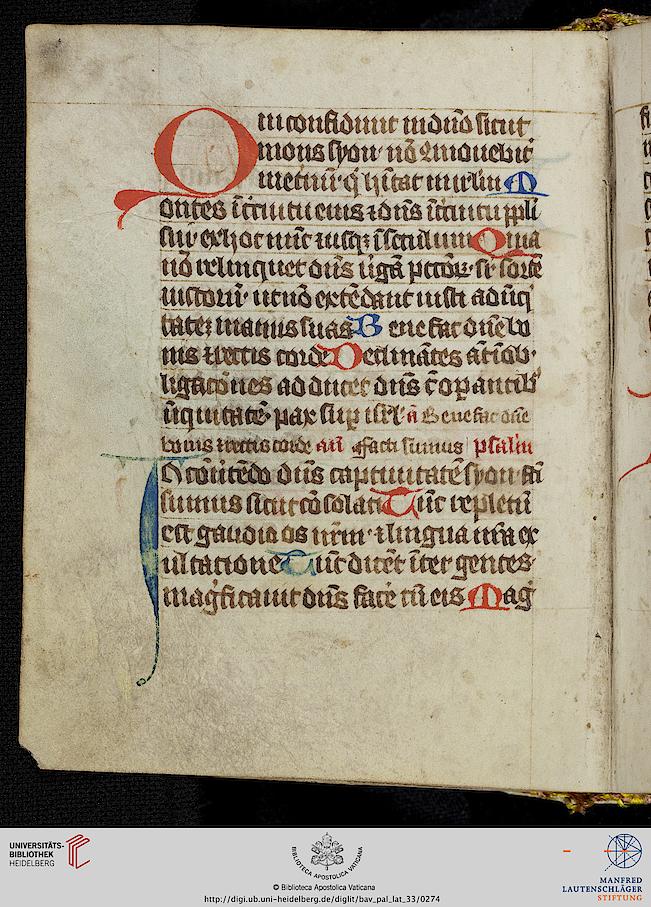 Qui confidunt in dn̄o sicut
mons syon· nō ꝯmouebit᷑
in et̄nū· q̄ hītat in irlm̄ M
ontes ī c̄cuitu eius ⁊ dn̄s ī c̄cuitu ppl̄i
sui· ex hoc nūc ⁊ usqꝫ ī sc̄lum Quia
nō relinquet dn̄s uīgā pctōꝝ· sr̄ sortē
iustorū· ut nō extēdant iusti ad īiq
tatē manus suas Benefac dn̄e bo
nis ⁊ rectis corde Declinātes āt ī ob·
ligatōnes adducet dn̄s cū oꝑantibꝰ
īiquitatē· pax suꝑ isrl̄· a᷑ Benefac dn̄e
bonis ⁊ rectis corde an̄ Facti sumus psalm
In cōu̓tēdo dn̄s captiuitatē syon· fc̄i
sumus sicut cōsolati Tūc repletū
est gaudio os nr̄m· ⁊ lingua nr̄a ex
ultatione Tūc dicēt īter gentes·
magͥficauit dn̄s facē cū eis Magͥ
UNIVERSITÄTS-
BIBLIOTHEK
HEIDELBERG
BIBLIOTECA APOSTOLICA VATICANA
© Biblioteca Apostolica Vaticana
http://digi.ub.uni-heidelberg.de/diglit/bav_pal_lat_33/0274
MANFRED
LAUTENSCHLÄGER
STIFTUNG